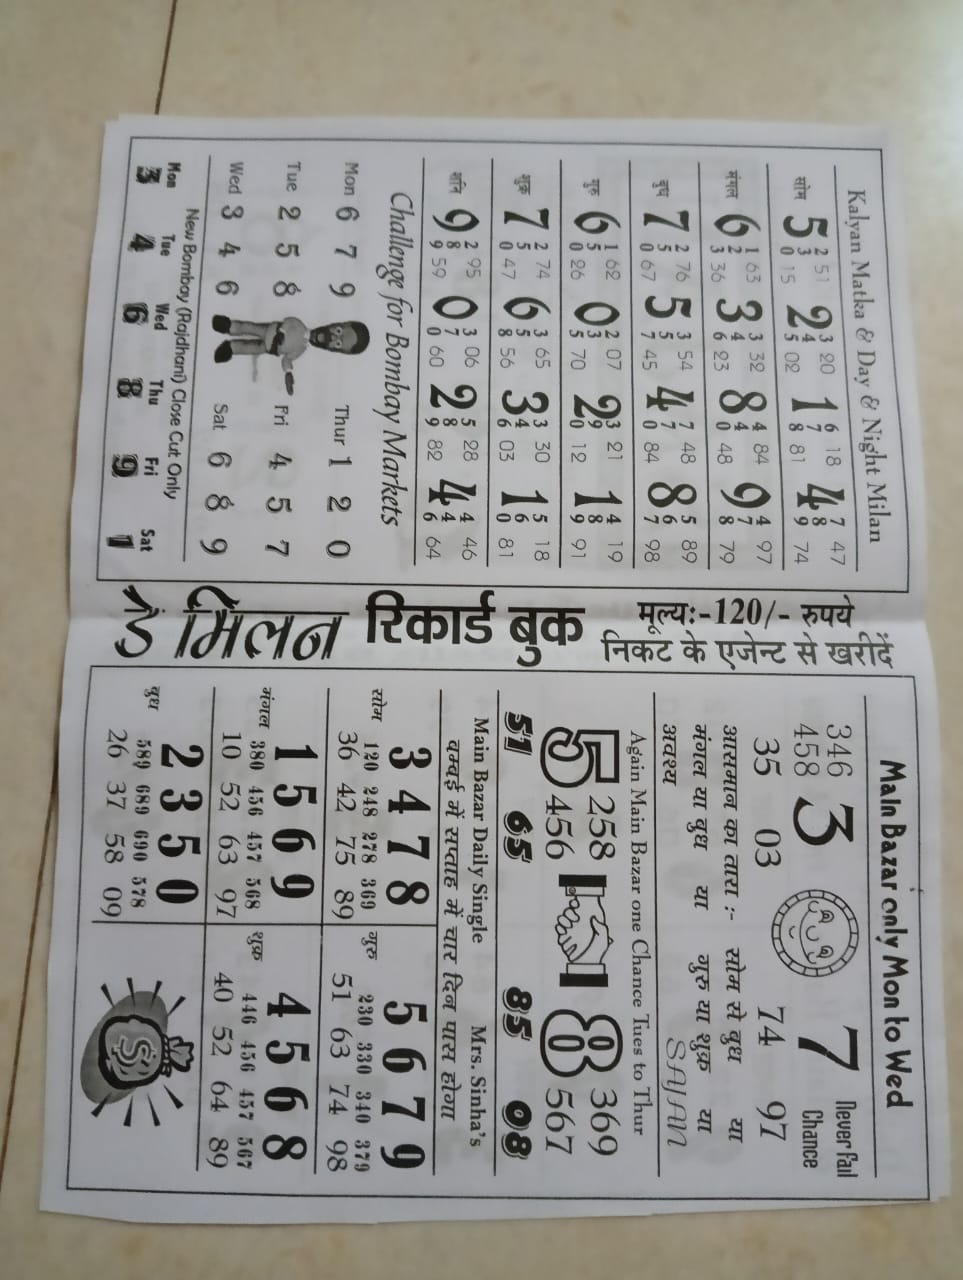 Kalyan Matka & Day & Night Milan
सोम 5 2 3 0 51 15 2 3 4 5 20 02 1 6 7 8 18 81 4 7 8 9 47 74
मंगल 6 1 2 3 63 36 3 3 4 6 32 23 8 4 4 0 84 48 9 4 7 8 97 79
बुध 7 2 5 0 76 67 5 3 5 7 54 45 4 7 7 0 48 84 8 5 6 7 89 98
गुरु 6 1 5 0 62 26 0 2 3 5 07 70 2 3 9 0 21 12 1 4 8 9 19 91
शुक्र 7 2 5 0 74 47 6 3 5 8 65 56 3 3 4 6 30 03 1 5 6 0 18 81
शनि 9 2 8 9 95 59 0 3 7 0 06 60 2 5 8 9 28 82 4 4 4 6 46 64
Challenge for Bombay Markets
Mon 6 7 9 Thur 1 2 0
Tue 2 5 8 Fri 4 5 7
Wed 3 4 6 Sat 6 8 9
New Bombay (Rajdhani) Close Cut Only
Mon Tue Wed Thu Fri Sat
3 4 6 8 9 1
मूल्य:-120/- रुपये
निकट के एजेन्ट से खरीदें
रिकार्ड बुक
डे मिलन
Main Bazar only Mon to Wed
346 3 7 Never Fail
458 Chance
35 03 74 97
आसमान का तारा :- सोम से बुध या
मंगल या बुध या गुरु या शुक्र या
अवश्य SAJAN
Again Main Bazar one Chance Tues to Thur
5 258 8 369
456 567
51 65 85 08
Main Bazar Daily Single Mrs. Sinha's
बम्बई में सप्ताह में चार दिन पास होगा
3 4 7 8
सोम 120 248 278 369
36 42 75 89
5 6 7 9
गुरु 230 330 340 379
51 63 74 98
1 5 6 9
मंगल 380 456 457 568
10 52 63 97
4 5 6 8
शुक्र 446 456 457 567
40 52 64 89
2 3 5 0
बुध 589 689 690 578
26 37 58 09
$